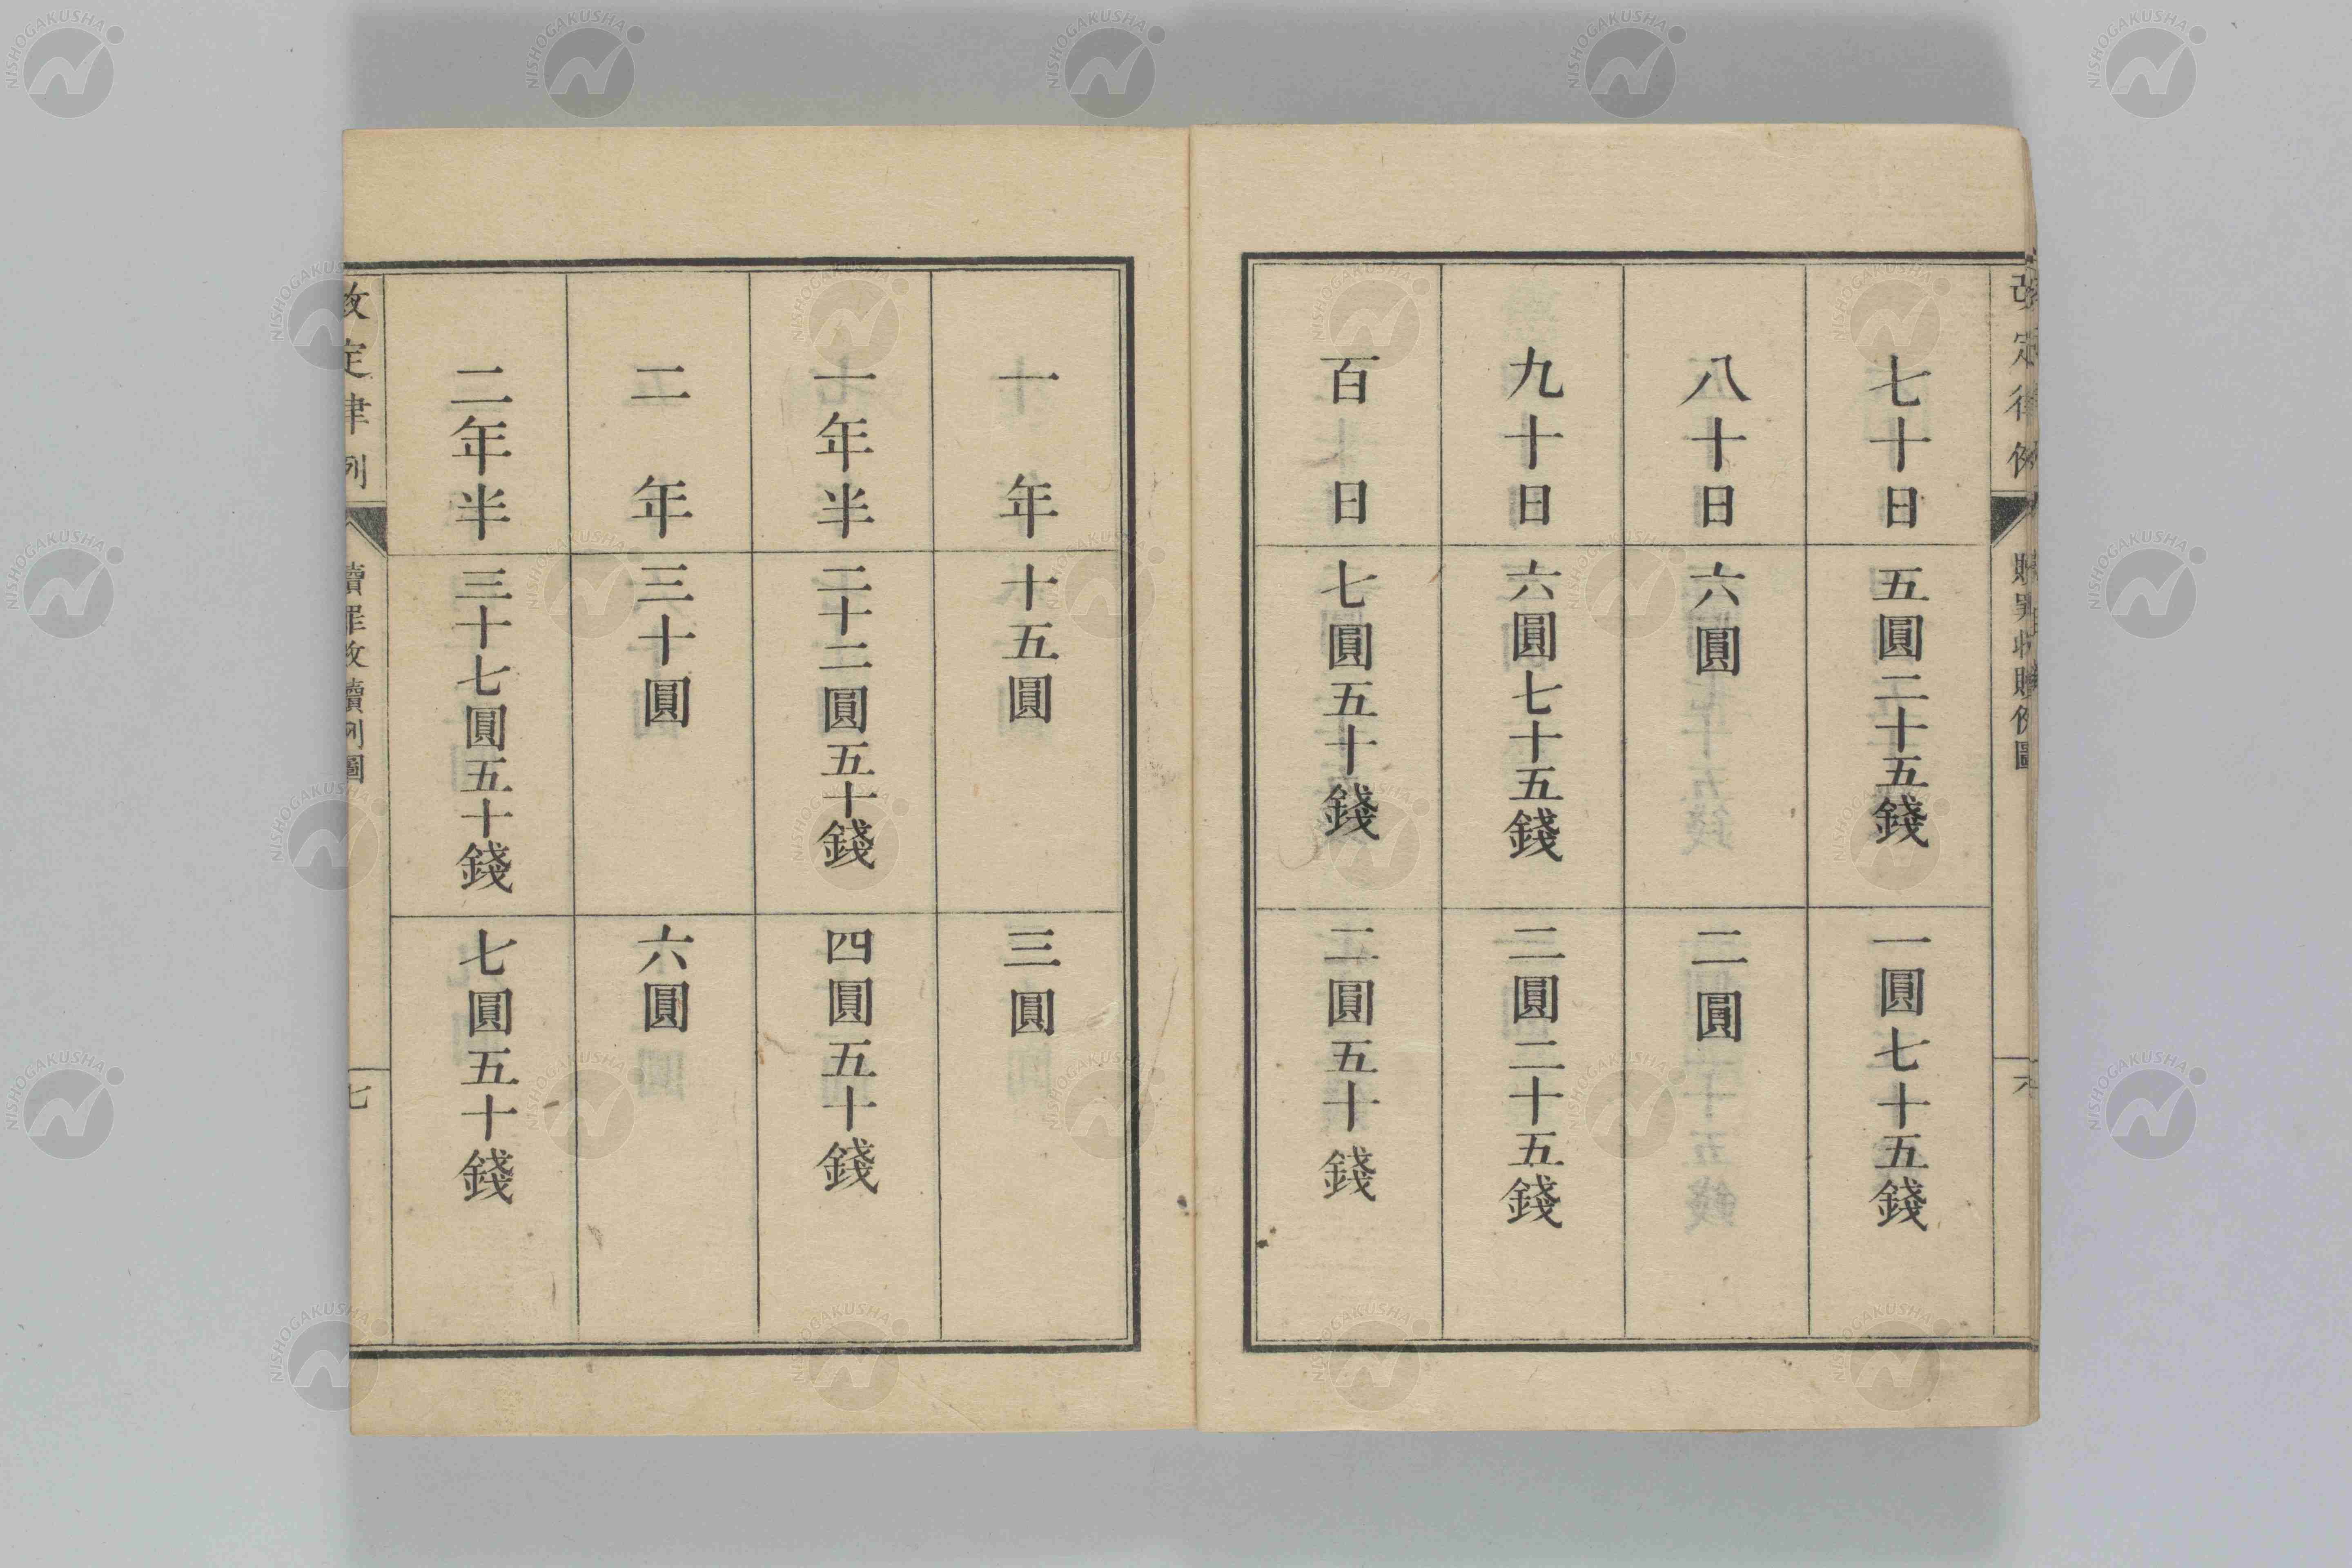 改定律例
贖罪收贖例圖
七十日
五圓二十五錢
一圓七十五錢
八十日
六圓
二圓
九十日
六圓七十五錢
二圓二十五錢
百日
七圓五十錢
二圓五十錢
一年
十五圓
三圓
一年半
二十二圓五十錢
四圓五十錢
二年
三十圓
六圓
二年半
三十七圓五十錢
七圓五十錢
改定律例
贖罪收贖例圖
七
NISHOGAKUSHA